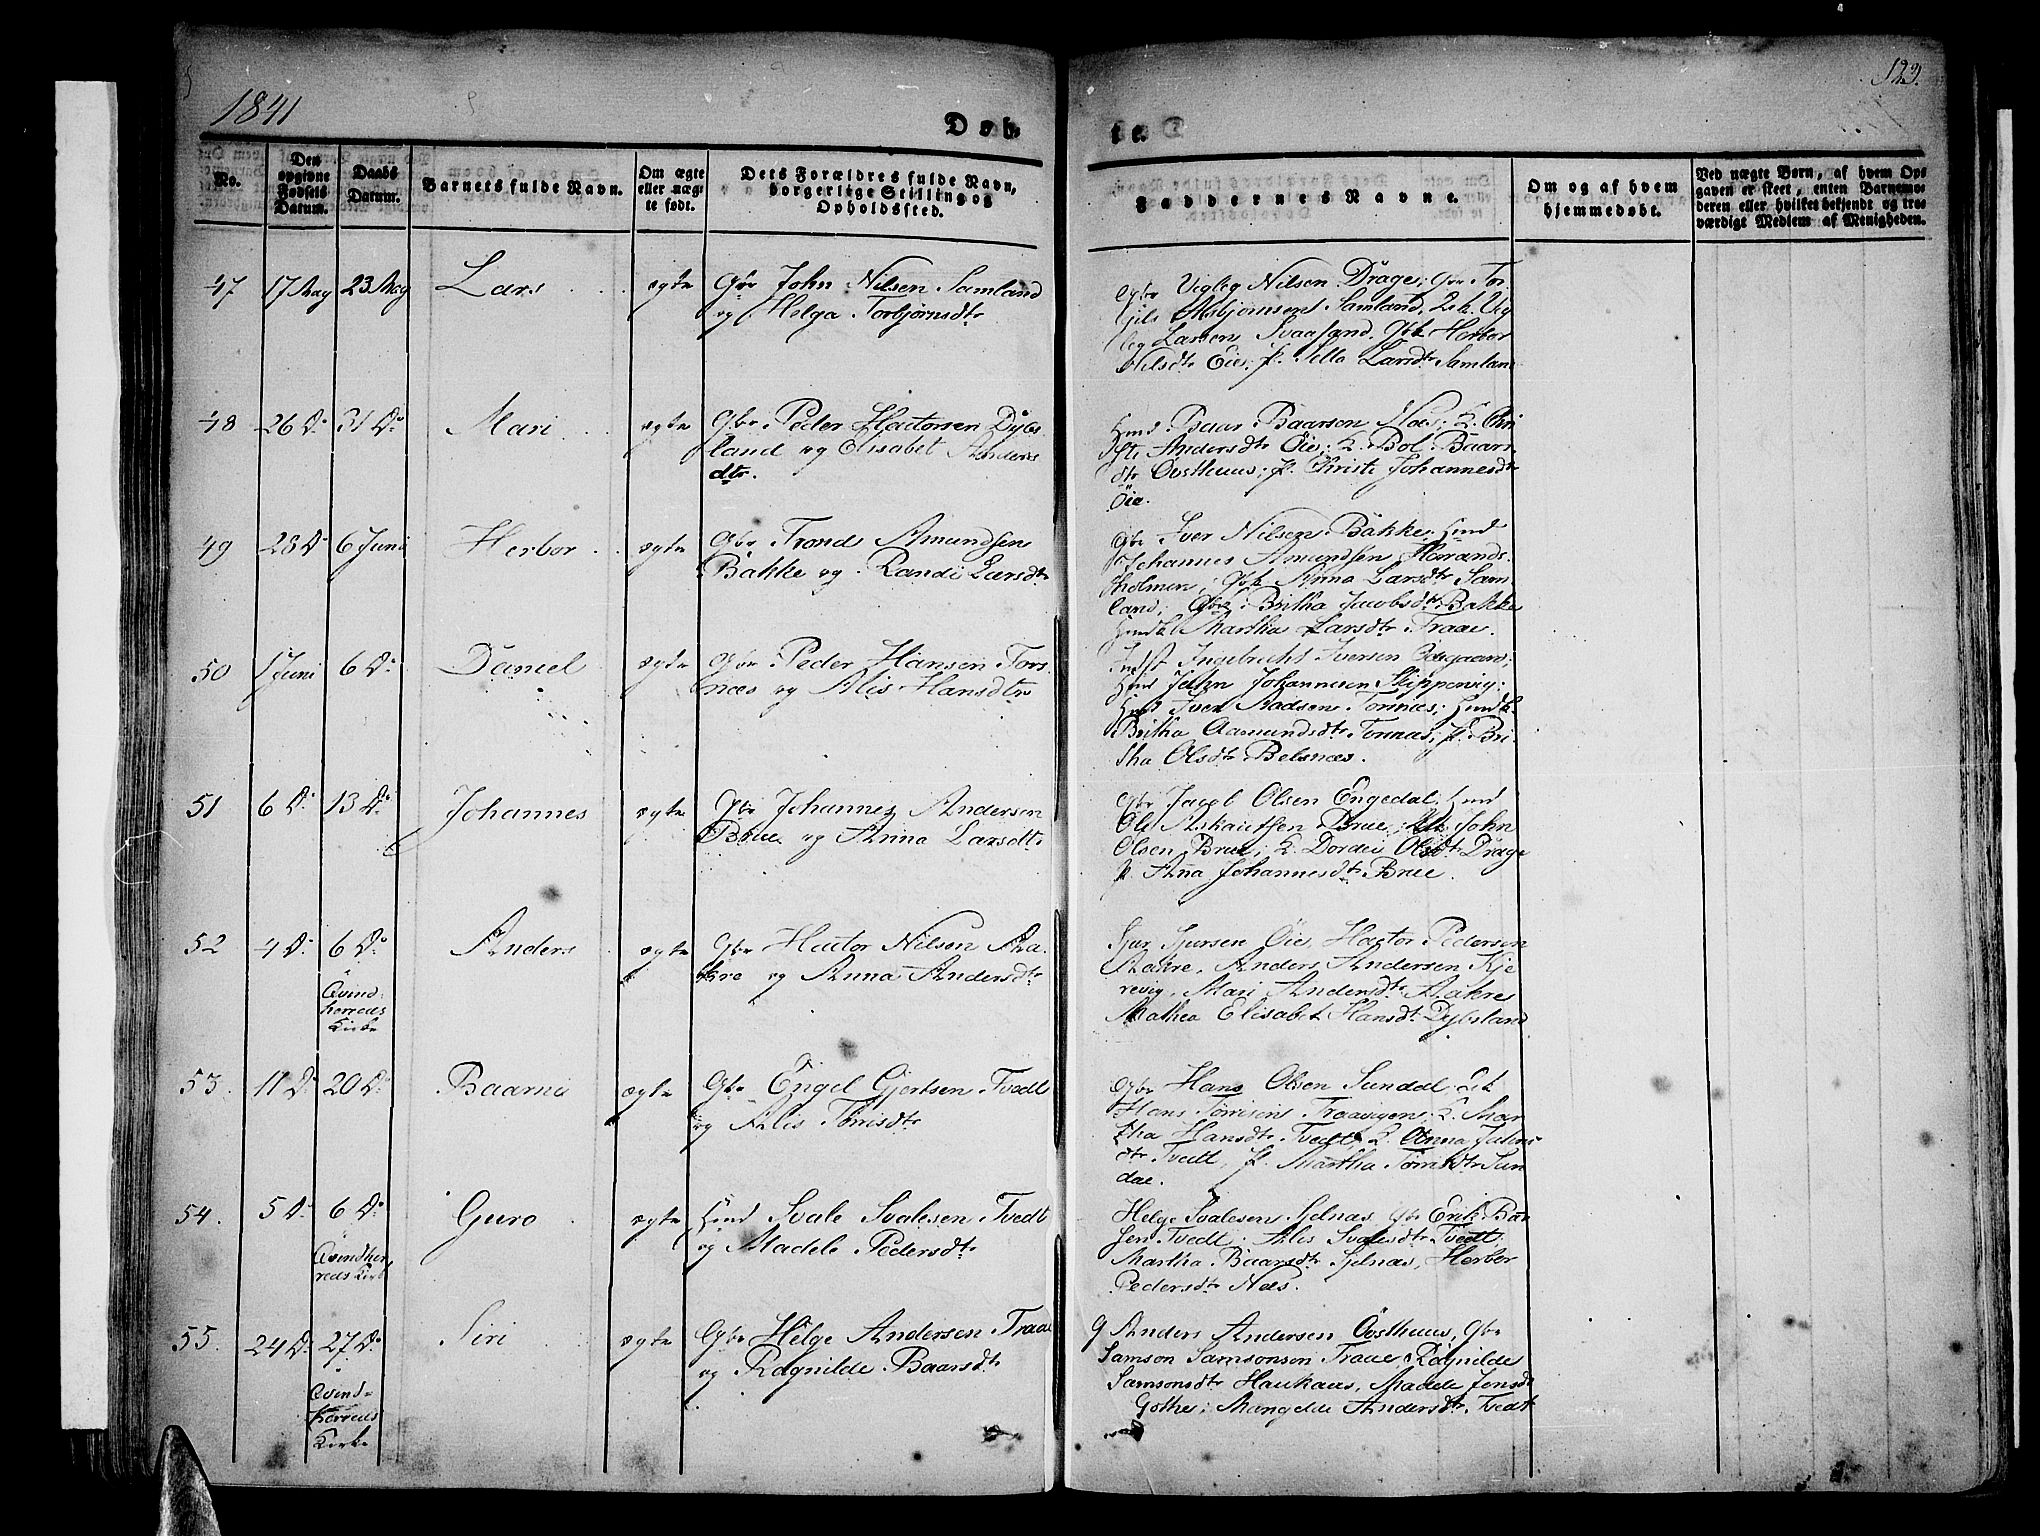 1841
123.
Døb
te.
No.
Den
opgivne
Fødsels
Datum.
Daabs
Datum.
Barnets fulde Navn.
Om ægte
eller uæg
te født.
Dets Forældres fulde Navn,
borgerlige Stilling og
Opholdssted.
Faddernes Navne.
Om og af hvem
hjemmedøbt.
Ved uægte Børn, af hvem Op
gaven er skeet, enten Barnemo
deren eller hvilket bekjendt og tro
værdigt Medlem af Menigheden.
47 17 May 23 May Lars ægte Gbr John Nilsen Samland
og Helga Torbjørnsdtr
Gbr Vigleg Nilsen Drage; Gbr Tor
gils Asbjørnsen Samland, Vig
leg Larsen Svaasand, Herbor
Nilsdtr Øie; p. Larsdtr Samland
48 26 Do 31 Do Mari ægte Gbr Peder Hactorsen Dybs
land og Elisabet Anders
dtr.
Hmd Baar Baarson Næs; K. Chri
sti Andersdtr Øie; K. Bol Baars
dtr Oosthuus; p. Christi Johannesdtr
Øie.
49 28 Do 6 Juni Herbor ægte Gbr Trond Amundsen
Bakke og Randi Larsdtr
Gbr Iver Nilsen Bakke; Hmd
Johannes Amundsen
holmen; Gbk Anna Larsdtr Sam
land; Gbk Britha Jacobsdtr Bakke
Hmdk Martha Larsdtr Traae.
50 1 Juni 6 Do Daniel ægte Gbr Peder Hansen Tors
næs og Alis Hansdtr
Indst Ingebrecht Iversen Ødegaard;
Hmd John Johannesen Skippervig;
Hmd Iver Madsen Torsnæs; Hmdk.
Britha Aamundsdtr Torsnæs; p. Bri
tha Olsdtr Belsnæs.
51 6 Do 13 Do Johannes ægte Gbr Johannes Andersen
Brue og Anna Larsdtr
Gbr Jacob Olsen Engedal; Hmd
Ole Askautsen Brue; John
Olsen Brue; K. Dordei Olsdtr Drage
p. Anna Johannesdtr Brue.
52 4 Do 6 Do Anders ægte Gbr Hactor Nilsen Aa
kre og Anna Andersdtr
Qvind-
herreds
Kirke
Sjur Sjursen Øie, Hactor Pedersen
Aakre, Anders Andersen Kje
revig, Mari Andersdtr Aakre
Mathea Elisabet Hansdtr Dybsland
53. 11 Do 20 Do ægte Gbr Engel Gjertsen Tvedt
og Alis Tørrisdtr
Gbr Hans Olsen Sundal;
Hans Tørrisen Traavigen; K. Mar
tha Hansdtr Tvedt; K. Anna
dtr Tvedt, p. Martha Tørrisdtr Sun
dal.
54. 5 Do 6 Do Guro ægte Hmd Svale Svalesen Tvedt
og Madele Pedersdtr
Qvindher
reds Kirke
Helge Svalesen Sjelnæs, Gbr Erik Baar
sen Tvedt; Alis Svalesdtr Tvedt,
Martha Baarsdtr Sjelnæs, Herbor
Pedersdtr Næs.
55. 24 Do 27 Do Siri ægte Gbr Helge Andersen Traae
og Ragnilde Baarsdtr
Qvind-
herreds
Kirke
Anders Andersen Oosthuus, Gbr
Samson Samsonsen Traae, Ragnilde
Samsonsdtr Haukaas, Madele Jensdtr
Gothe; Mangelde Andersdtr Tvedt